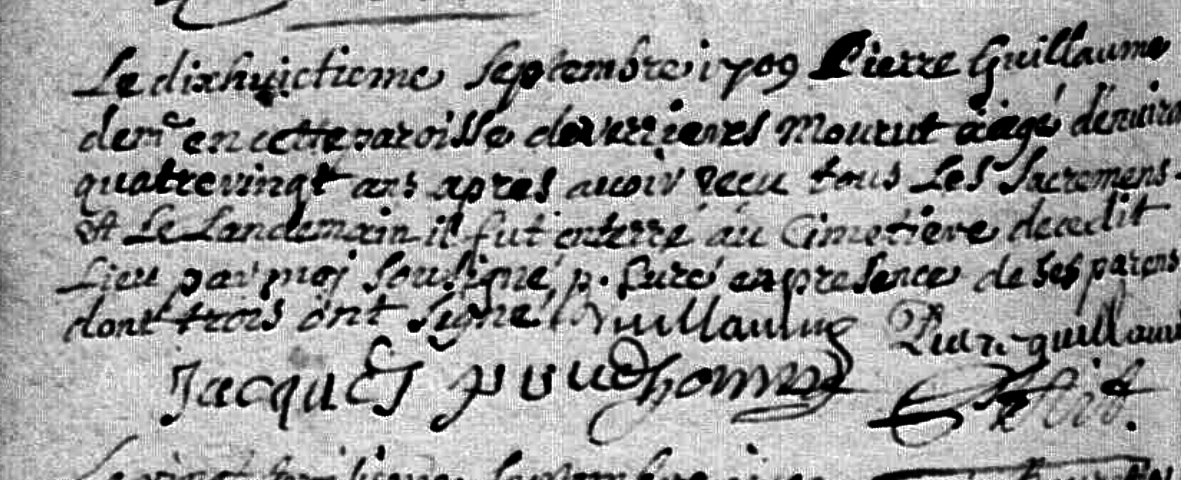 Le dixhuictieme Septembre 1709 Pierre Guillaume
dem.e en cette paroisse de verrieres mourut aagé d'enviro
quatrevingt ans apres avoir Receu tous Les Sacremens
et Le Landemain il fut enterré au Cimetiere decedit
Lieu par moi Soussigné p. Curé en presence de ses parens
dont trois ont signé Guillaume Pierre guillaume
Jacques prudhomme